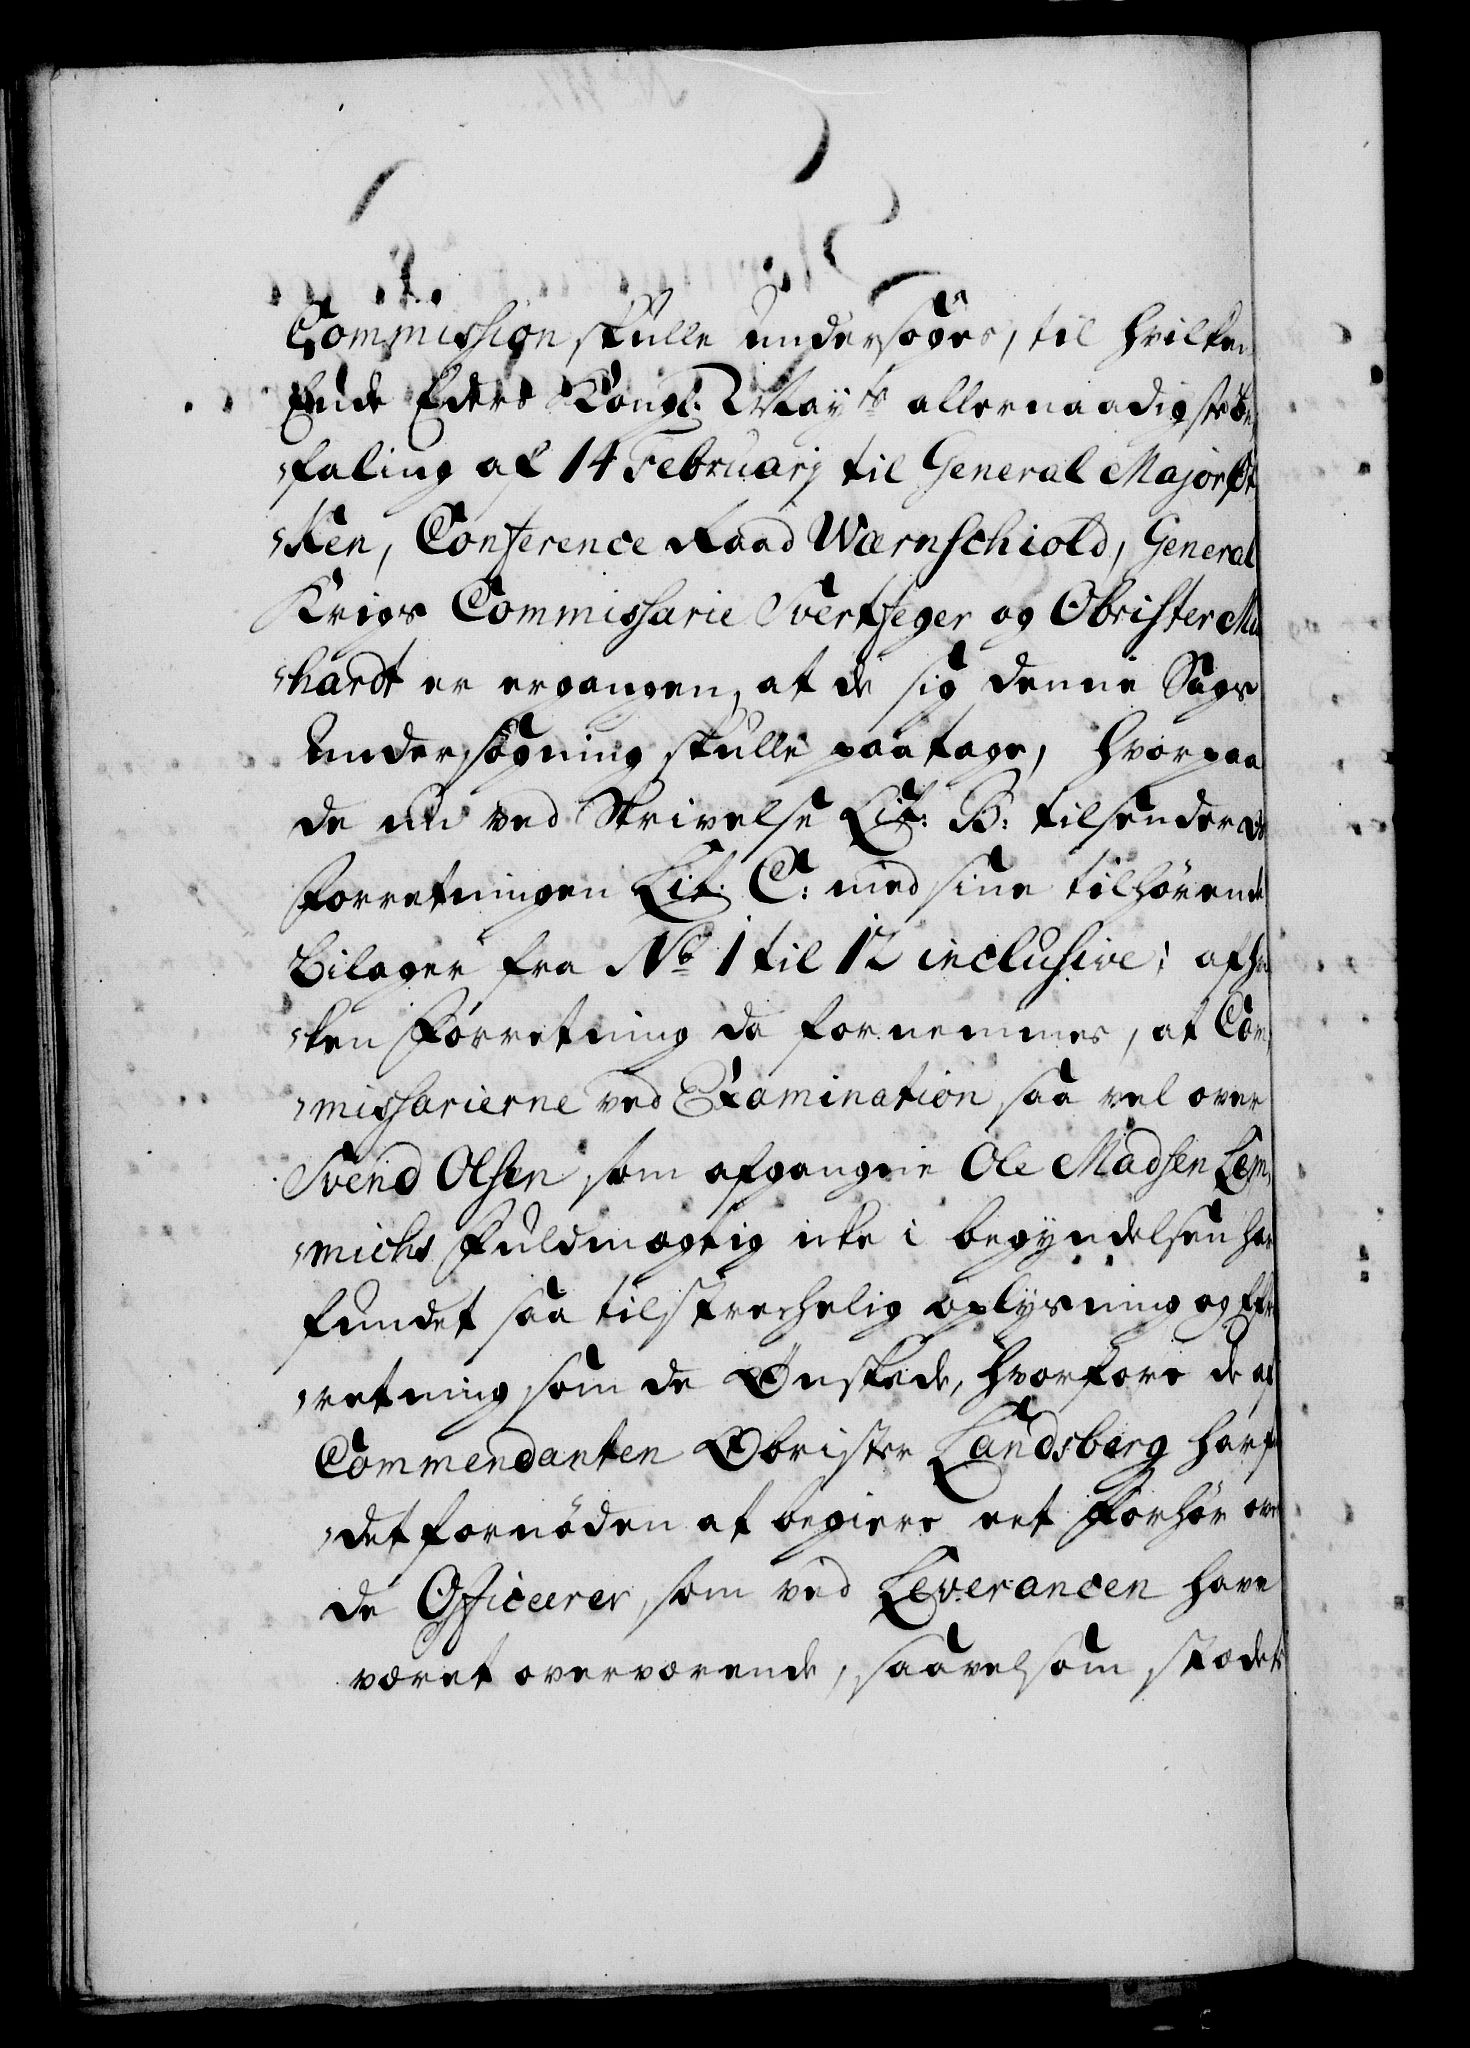 Commission skulle undersøges, til hvilken
Ende Eders Kongl. Mayts allernaadigste be,
,faling af 14 Februarj til General Major
,ken, Conference Raad Wærnschiold, General
Krigs Commissarie Svertfeger og Obrister
,hardt er ergangen, at de sig denne Sags
undersøgning skulle paatage, hvorpaa
de nu ved Skrivelse Lit: B: tilsender
Forretningen Lit: C: med sine tilhørende
Bilager fra No 1 til 12 inclusive; af
,ken Forretning da fornemmes, at Com,
,missarierne ved Examination saa vel over
Svend Olsen, som afgangne Ole Madsen Lem,
,michs Fuldmægtig icke i begyndelsen har
fundet saa tilstrechelig oplysning og
,retning som de Ønskede, hvorfore de af
Commendanten Obrister Landsberg har
,det fornøden at begiere eet Forhør over
de Officerer, som ved Leverancen have
været overværende, saavelsom stædets